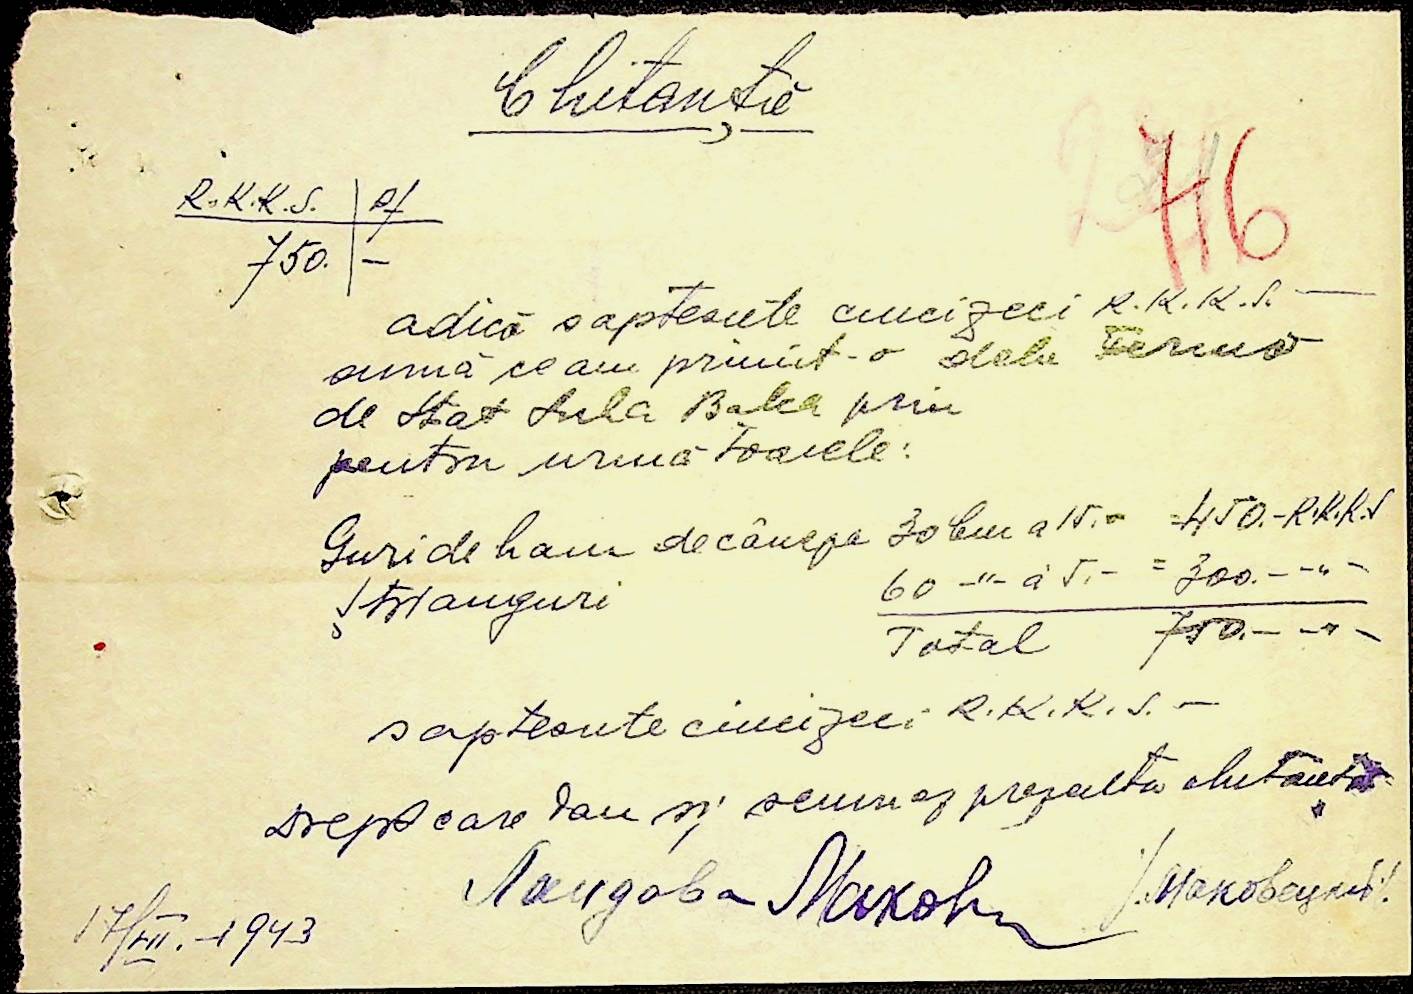 Chitanță
76
R.K.K.S. | Pf
750. | –
adică saptesute cincizeci R.K.K.S. —
sumă ce am primit-o dela Ferma
de Stat Sula Balca prin
pentru următoarele:
Guri de ham de cânepa 30 buc a 15.– = 450.– R.K.K.S
Ștrianguri 60 –"– á 5.– = 300.– –"–
Total 750.– –"–
saptesute cincizeci R.K.K.S. –
Drept care dau și semnez prezenta chitanță
Ландова Макови /Маковецкий/.
17/VII.–1943